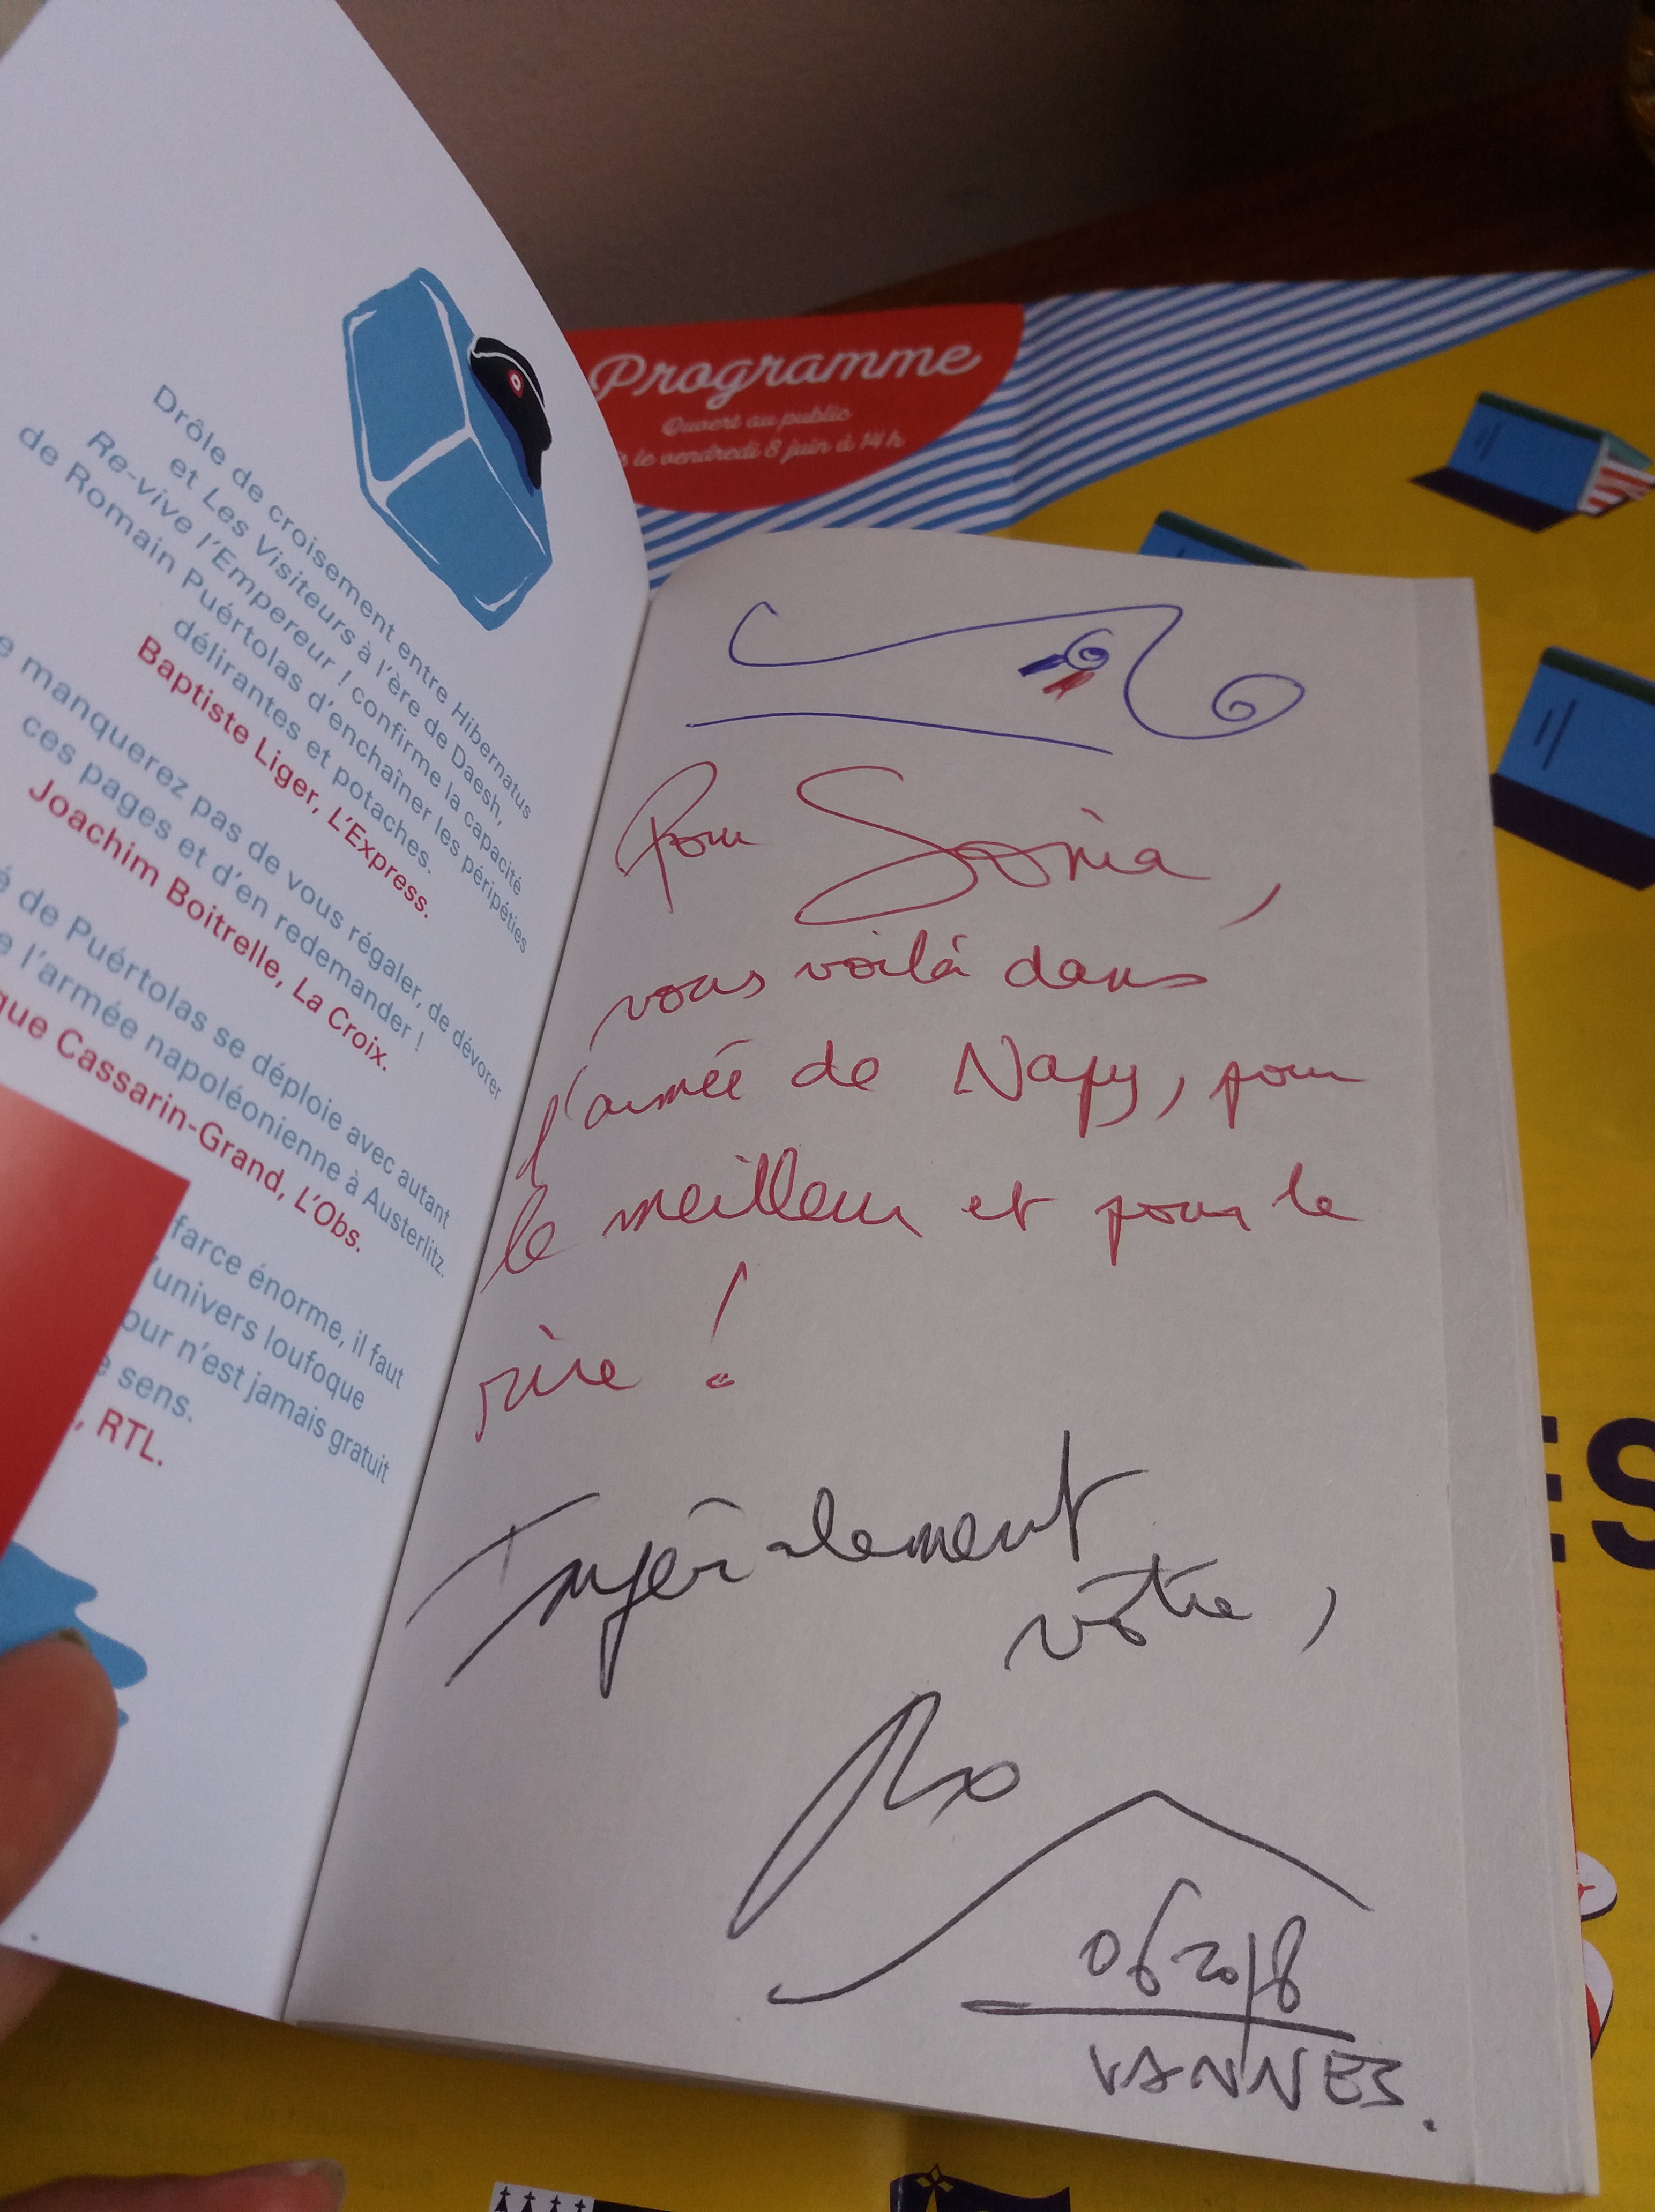 Drôle de croisement entre Hibernatus
et Les Visiteurs à l'ère de Daesh,
Re-vive l'Empereur ! confirme la capacité
de Romain Puértolas d'enchaîner les péripéties
délirantes et potaches.
Baptiste Liger, L'Express.
manquerez pas de vous régaler, de dévorer
ces pages et d'en redemander !
Joachim Boitrelle, La Croix.
de Puértolas se déploie avec autant
l'armée napoléonienne à Austerlitz.
Cassarin-Grand, L'Obs.
farce énorme, il faut
univers loufoque
n'est jamais gratuit
sens.
RTL.
Programme
Ouvert au public
le vendredi 8 juin à 14 h
Pour Sonia,
vous voilà dans
l'armée de Napy, pour
le meilleur et pour le
rire !
Impérialement
vôtre,
06 2018
VANNES.
ES